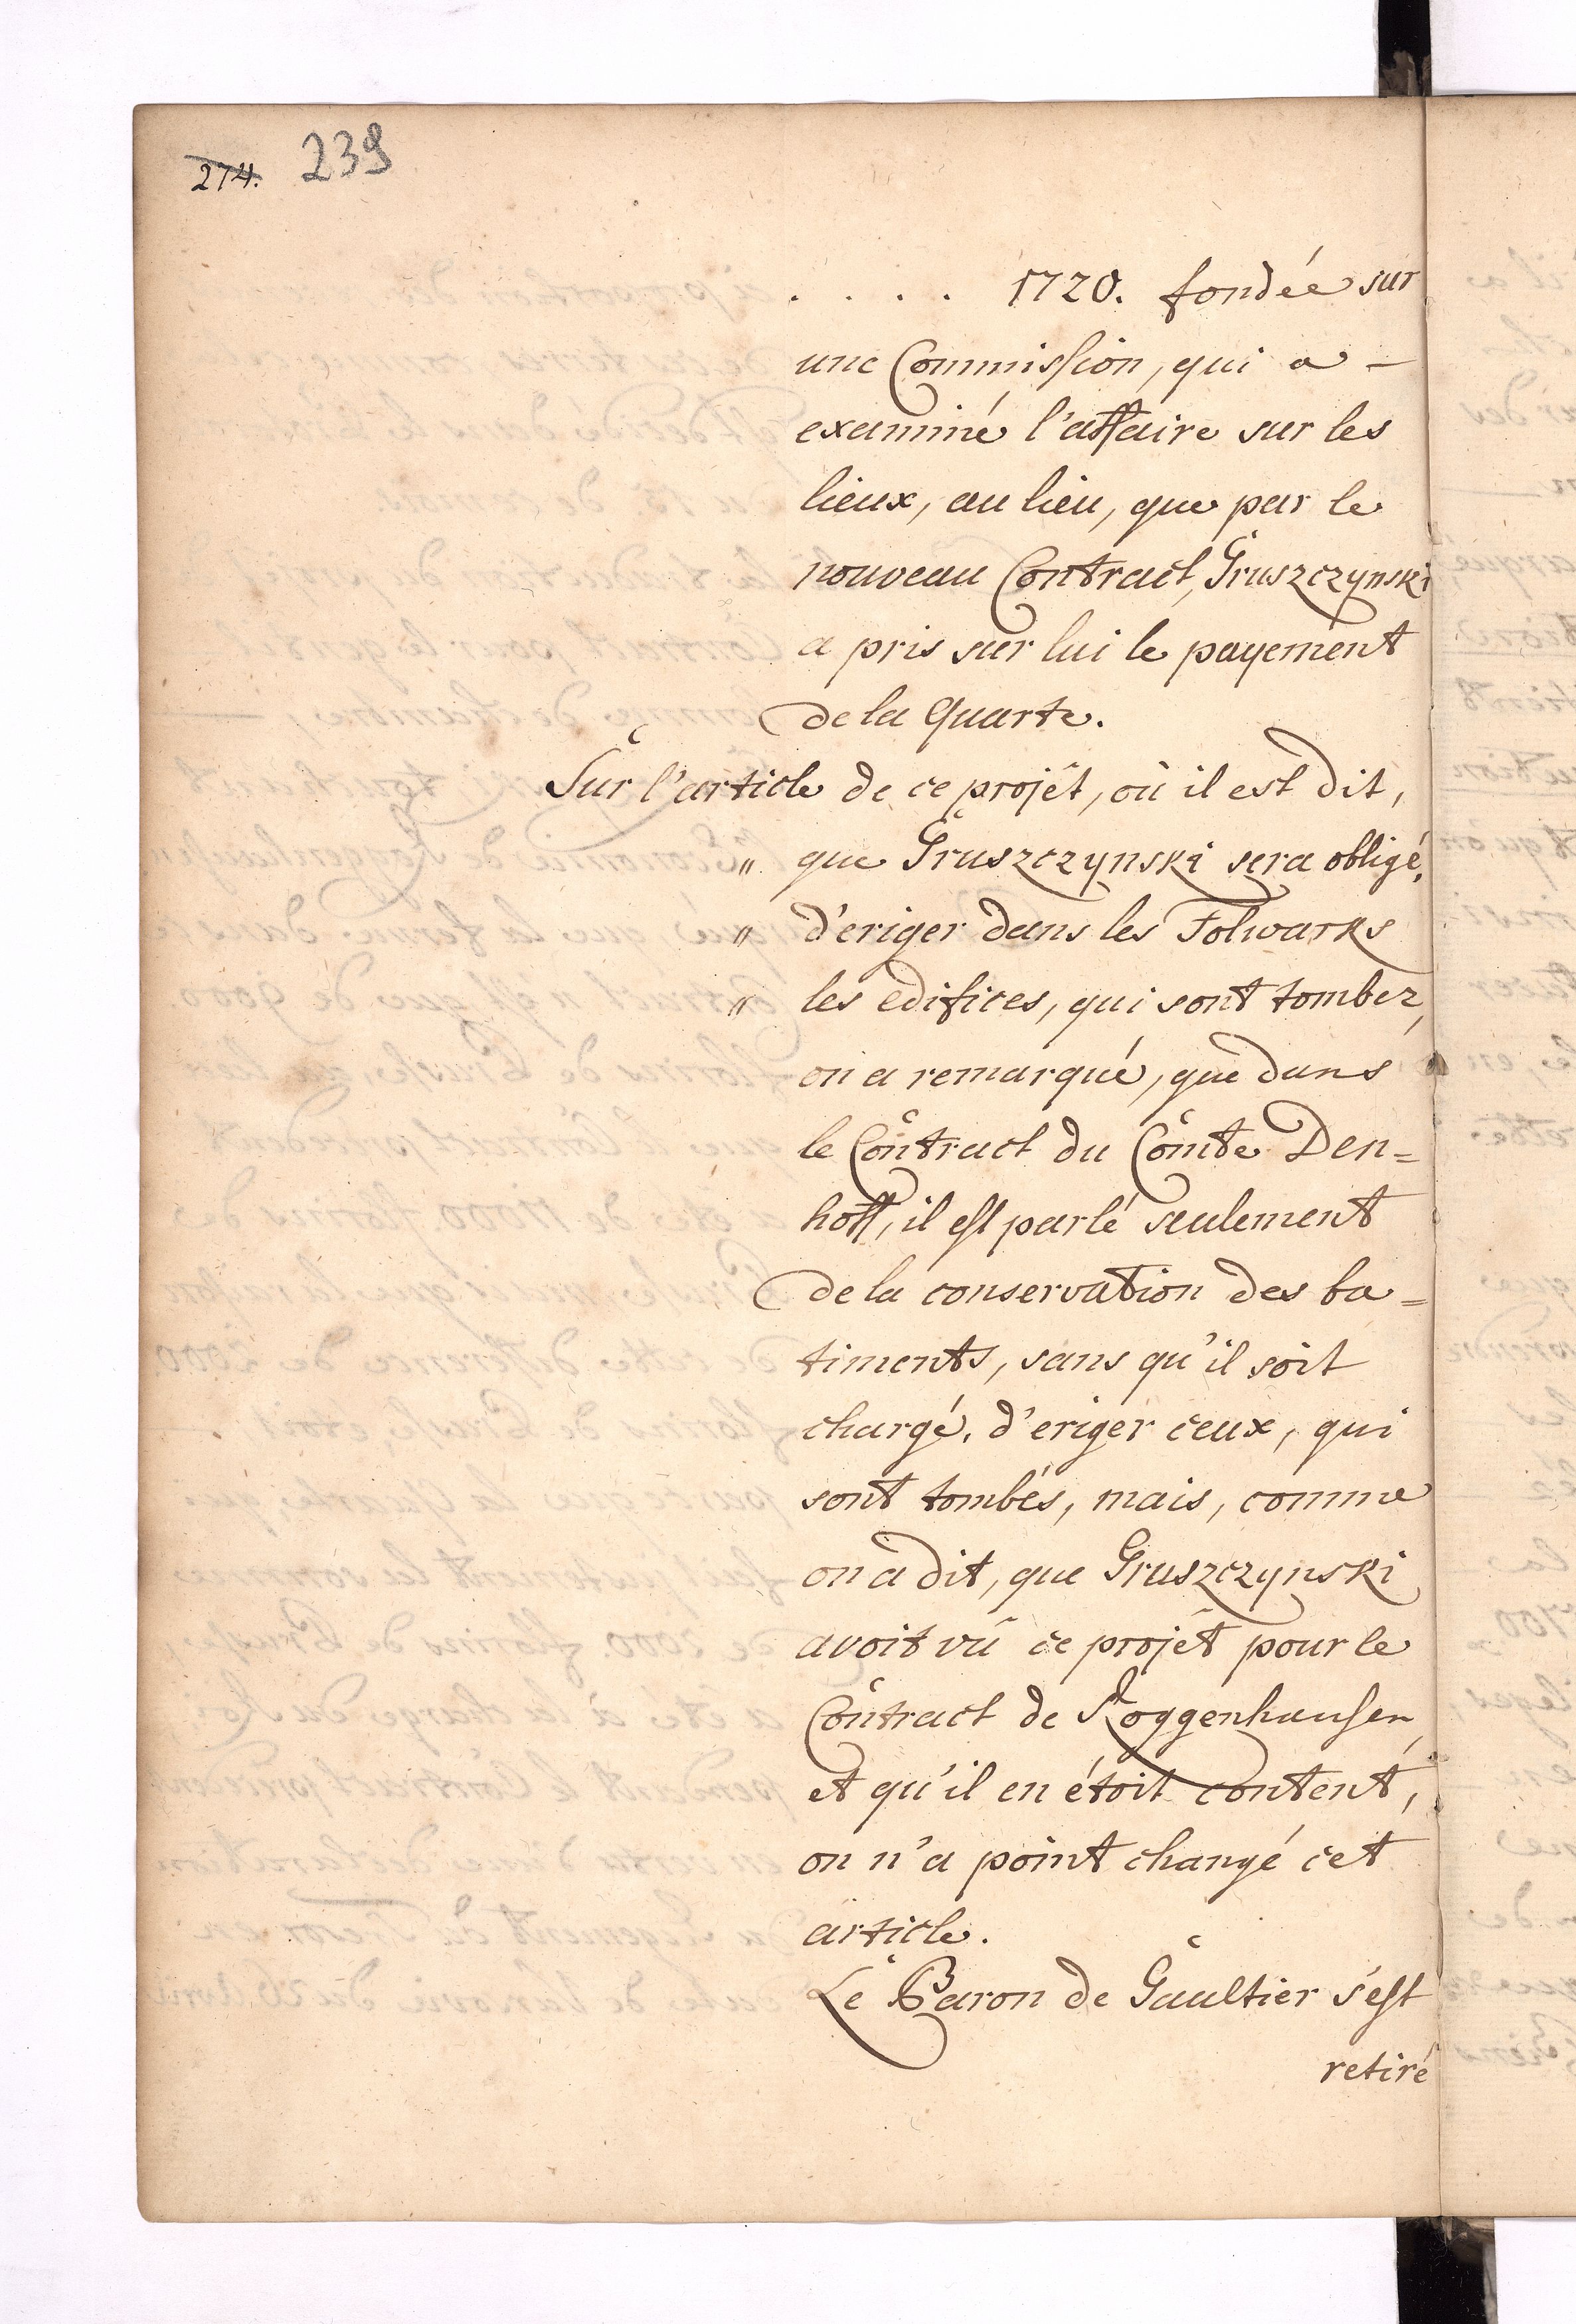 274. 239
. . . . 1720. fondée sur
une Commission, qui a -
examiné l'affaire sur les
lieux, au lieu, que par le
nouveau Contract, Gruszczynski
a pris sur lui le payement
de la Quarte.
Sur l'article de ce projét, où il est dit,
" que Gruszczynski sera obligé,
" d'eriger dans les Folwarks
" les edifices, qui sont tombez,
on a remarqué, que dans
le Contract du Comte Den=
hoff, il est parlé seulement
de la conservation des ba=
timents, sans qu'il soit
chargé, d'eriger ceux, qui
sont tombés, mais, comme
on a dit, que Gruszczynski
avoit vû ce projét pour le
Contract de Roggenhausen,
et qu'il en étoit content,
on n'a point changé cet
article.
Le Baron de Gaultier s'est
retiré